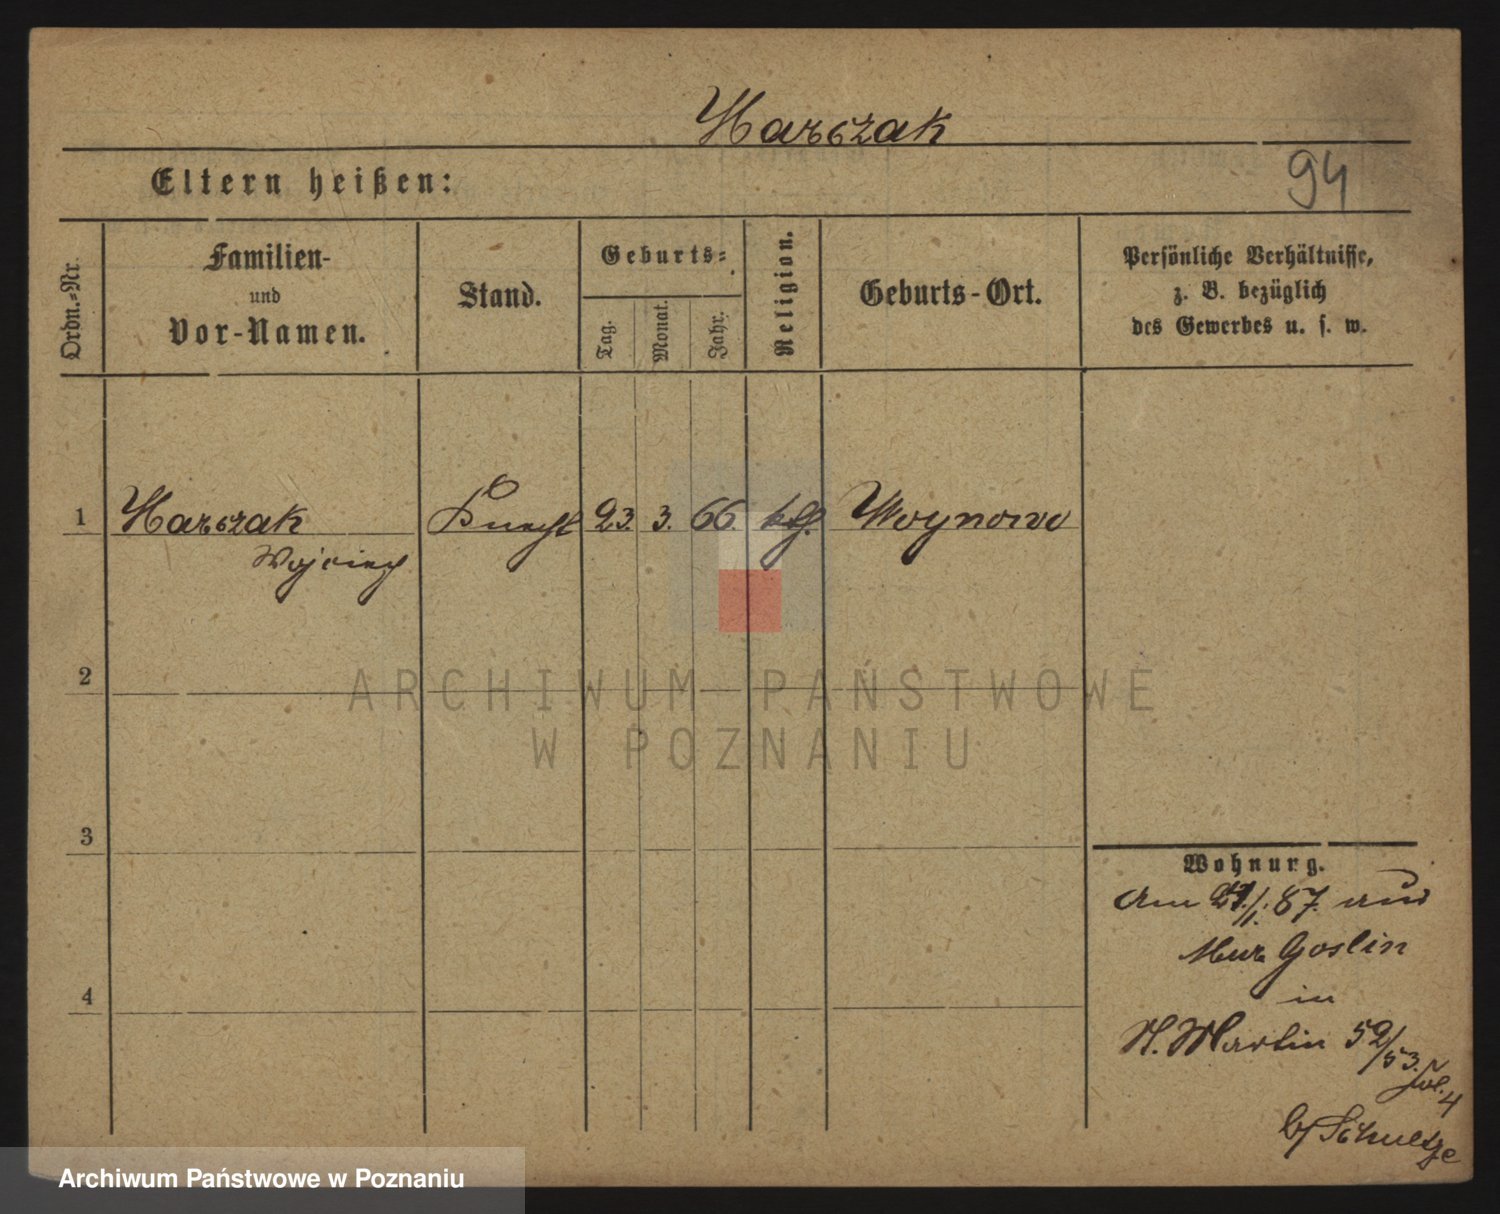 Harczak
Eltern heißen:
94
Ordn.=Nr.
Familien-
und
Vor-Namen.
Stand.
Geburts=
Tag.
Monat.
Jahr.
Religion.
Geburts-Ort.
Persönliche Verhältnisse,
z. B. bezüglich
des Gewerbes u. s. w.
1 Harczak Knecht 23. 3. 66. kth. Woynowo
Wojciech
2
3
4
Wohnung.
Am 27./1. 87. aus
Mur Goslin
in
St. Martin 52/53.
b/ Schultze
ARCHIWUM PAŃSTWOWE
W POZNANIU
Archiwum Państwowe w Poznaniu